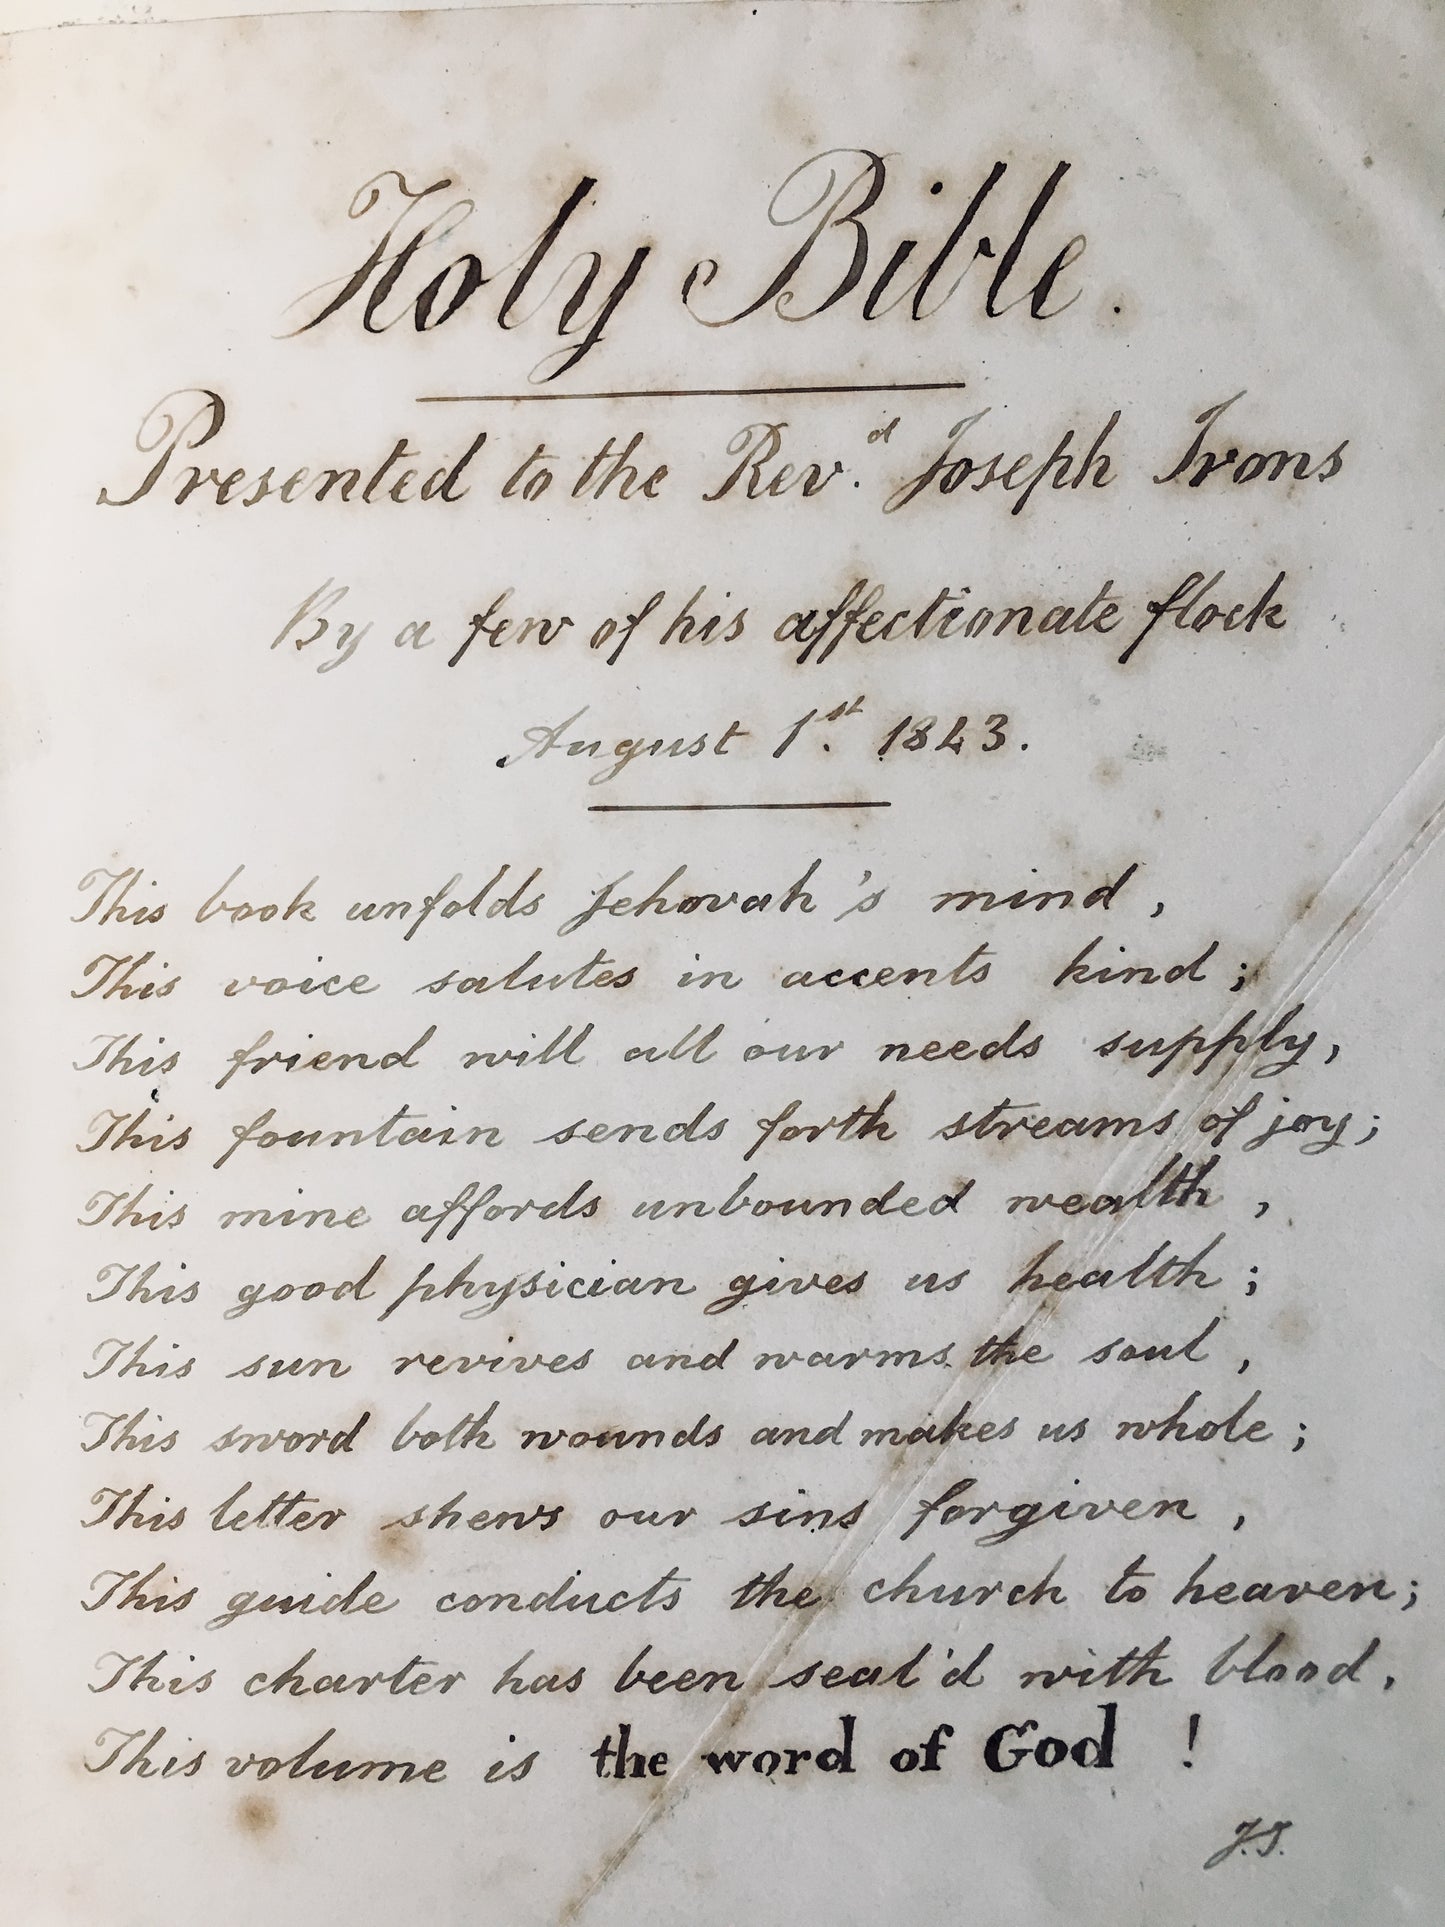 Holy Bible.
Presented to the Revd. Joseph Irons
By a few of his affectionate flock
August 1st. 1843.
This book unfolds Jehovah's mind,
This voice salutes in accents kind;
This friend will all our needs supply,
This fountain sends forth streams of joy;
This mine affords unbounded wealth,
This good physician gives us health;
This sun revives and warms the soul,
This sword both wounds and makes us whole;
This letter shews our sins forgiven,
This guide conducts the church to heaven;
This charter has been seal'd with blood,
This volume is the word of God !
J.I.